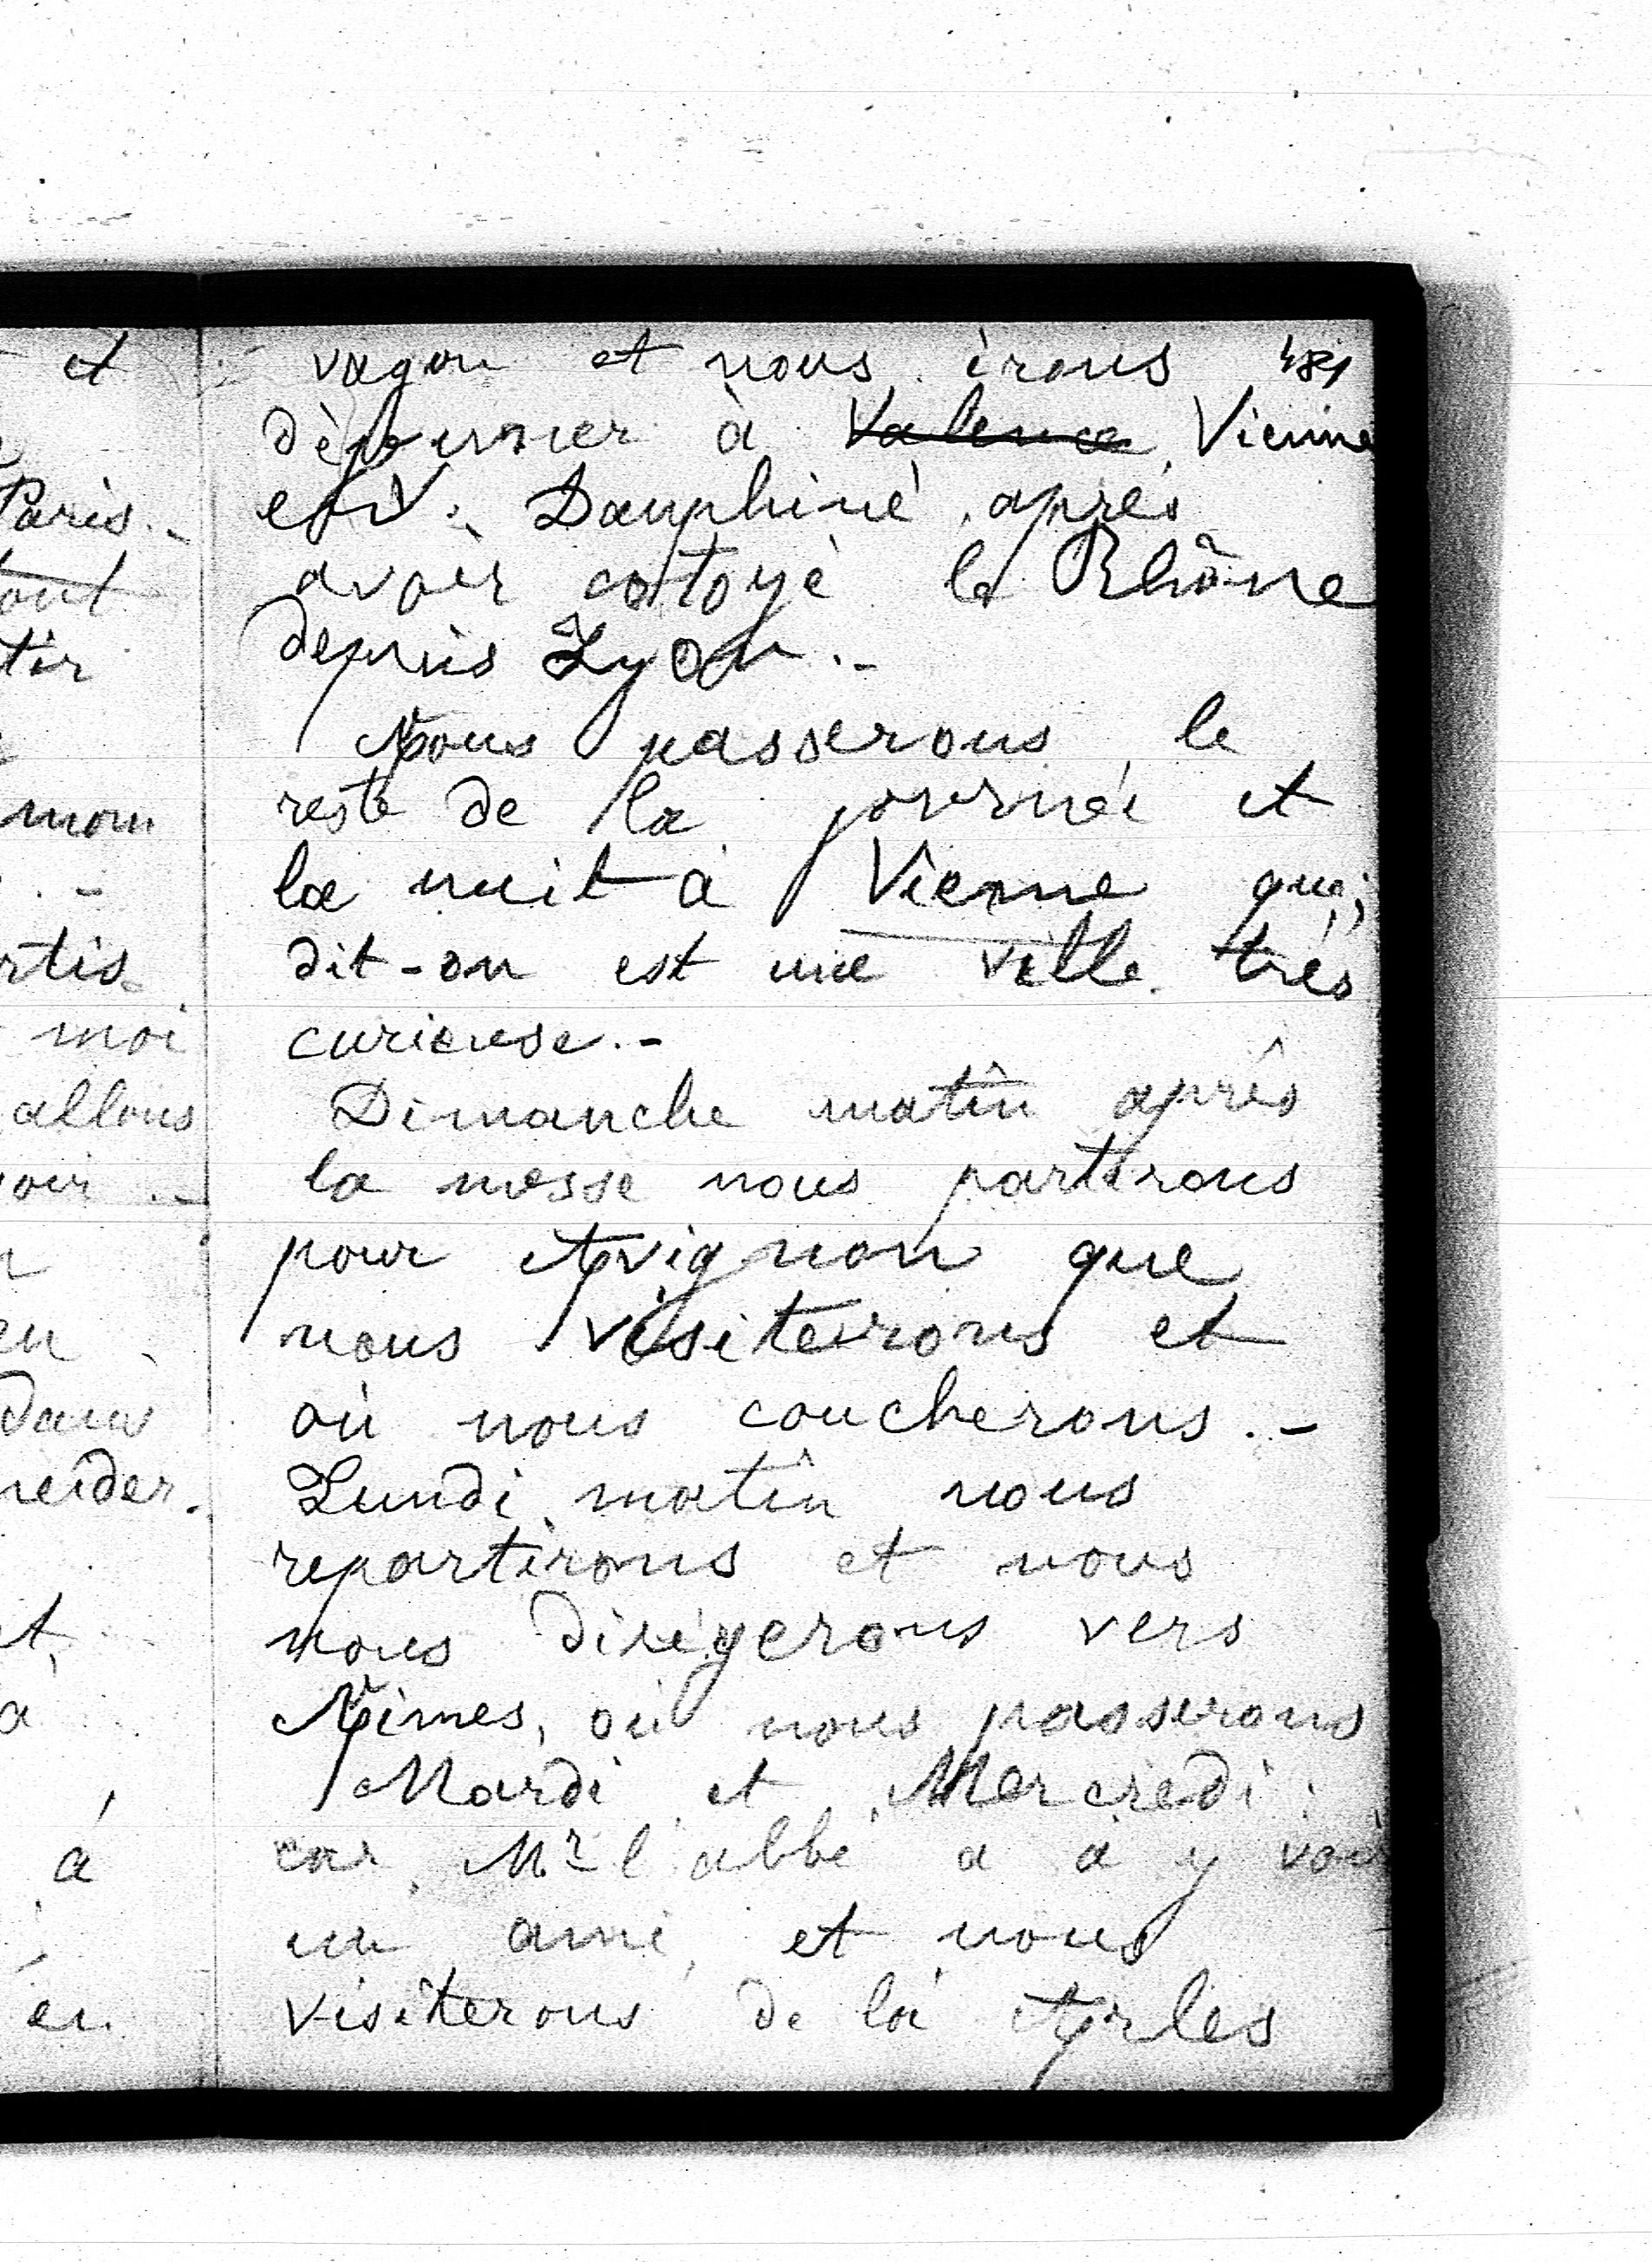 et
Paris.-
tout
tir
mom
. -
rtis
moi
allons
oir .-
en
dans
neider.
t,
à
à
en
vagon et nous irons 481
déjeunner à ~~Valence~~ Vienne
en Dauphiné, après
avoir cotoyé le Rhône
depuis Lyon.-
Nous passerons le
reste de la journée et
la nuit à Vienne qui,
dit-on est une ville très
curieuse.-
Dimanche matin après
la messe nous partirons
pour Avignon que
nous visiterons et
où nous coucherons.-
Lundi matin nous
repartirons et nous
nous dirigerons vers
Nîmes, où nous passerons
Mardi et Mercredi :
car Mr l'abbé a à y voir
un ami, et nous
visiterons de là Arles